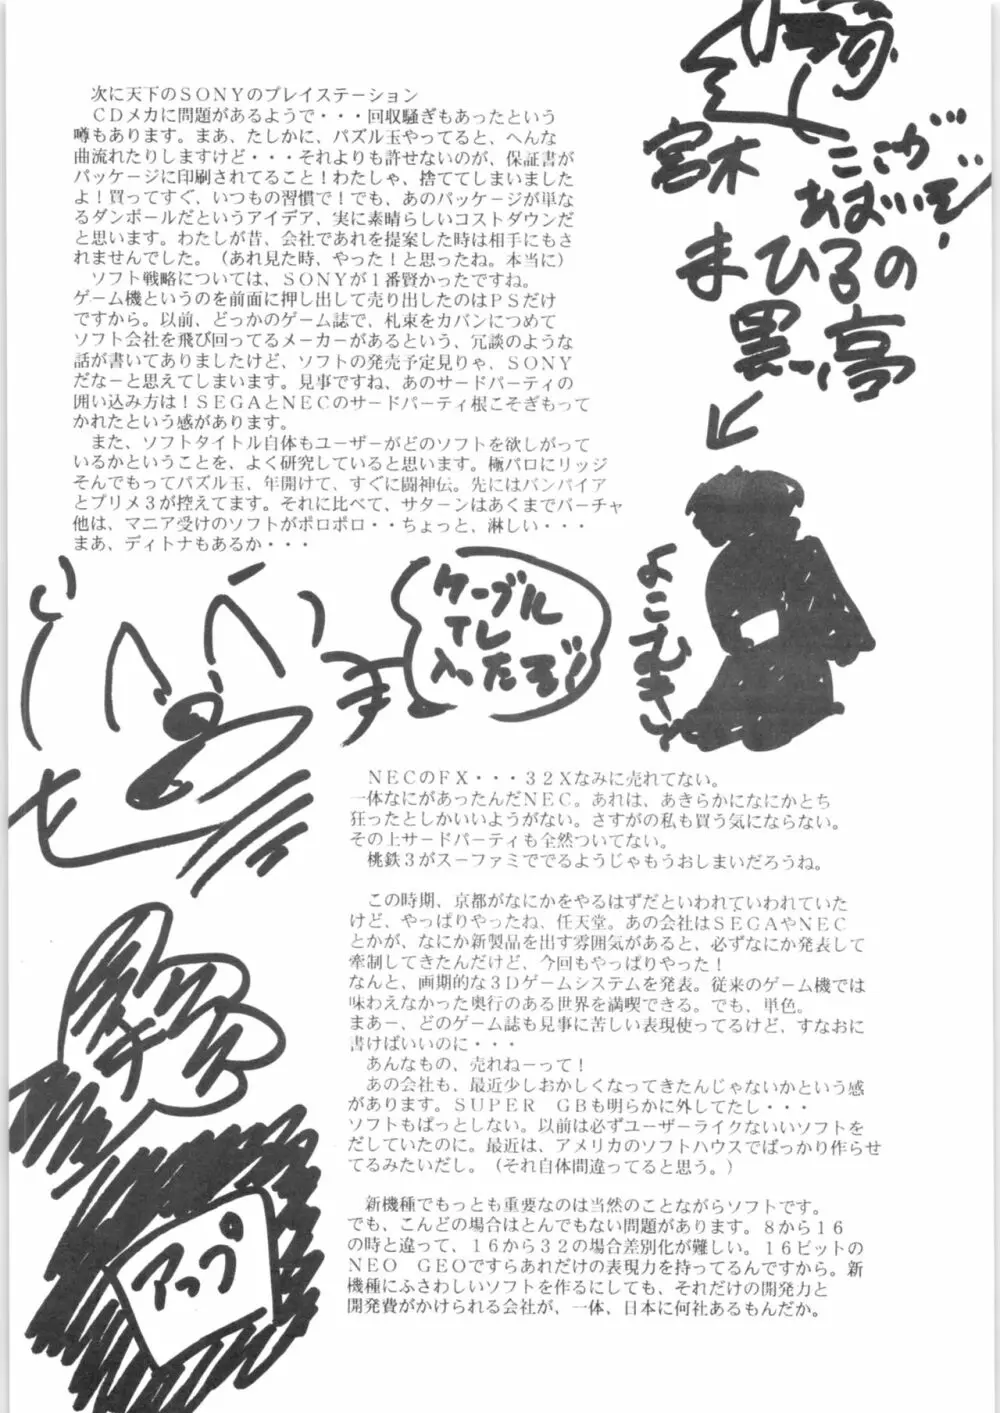 次に天下のSONYのプレイステーション
CDメカに問題があるようで・・・回収騒ぎもあったという
噂もあります。まあ、たしかに、パズル玉やってると、へんな
曲流れたりしますけど・・・それよりも許せないのが、保証書が
パッケージに印刷されてること！わたしゃ、捨ててしまいました
よ！買ってすぐ、いつもの習慣で！でも、あのパッケージが単な
るダンボールだというアイデア、実に素晴らしいコストダウンだ
と思います。わたしが昔、会社であれを提案した時は相手にもさ
れませんでした。（あれ見た時、やった！と思ったね。本当に）
ソフト戦略については、SONYが1番賢かったですね。
ゲーム機というのを前面に押し出して売り出したのはPSだけ
ですから。以前、どっかのゲーム誌で、札束をカバンにつめて
ソフト会社を飛び回ってるメーカーがあるという、冗談のような
話が書いてありましたけど、ソフトの発売予定見りゃ、SONY
だなーと思えてしまいます。見事ですね、あのサードパーティの
囲い込み方は！SEGAとNECのサードパーティ根こそぎもって
かれたという感があります。
また、ソフトタイトル自体もユーザーがどのソフトを欲しがって
いるかということを、よく研究していると思います。極パロにリッジ
そんでもってパズル玉、年開けて、すぐに闘神伝。先にはバンパイア
とプリメ3が控えてます。それに比べて、サターンはあくまでバーチャ
他は、マニア受けのソフトがポロポロ・・ちょっと、淋しい・・・
まあ、ディトナもあるか・・・
宮木
ここが
あまいぞ！
まひるの
黒い亭
よこむき
ケーブル
TV
入ったぞ！
NECのFX・・・32Xなみに売れてない。
一体なにがあったんだNEC。あれは、あきらかになにかとち
狂ったとしかいいようがない。さすがの私も買う気にならない。
その上サードパーティも全然ついてない。
桃鉄3がスーファミででるようじゃもうおしまいだろうね。
この時期、京都がなにかをやるはずだといわれていわれていた
けど、やっぱりやったね、任天堂。あの会社はSEGAやNEC
とかが、なにか新製品を出す雰囲気があると、必ずなにか発表して
牽制してきたんだけど、今回もやっぱりやった！
なんと、画期的な3Dゲームシステムを発表。従来のゲーム機では
味わえなかった奥行のある世界を満喫できる。でも、単色。
まあー、どのゲーム誌も見事に苦しい表現使ってるけど、すなおに
書けばいいのに・・・
あんなもの、売れねーって！
あの会社も、最近少しおかしくなってきたんじゃないかという感
があります。SUPER GBも明らかに外してたし・・・
ソフトもぱっとしない。以前は必ずユーザーライクないいソフトを
だしていたのに。最近は、アメリカのソフトハウスでばっかり作らせ
てるみたいだし。（それ自体間違ってると思う。）
アップ
新機種でもっとも重要なのは当然のことながらソフトです。
でも、こんどの場合はとんでもない問題があります。8から16
の時と違って、16から32の場合差別化が難しい。16ビットの
NEO GEOですらあれだけの表現力を持ってるんですから。新
機種にふさわしいソフトを作るにしても、それだけの開発力と
開発費がかけられる会社が、一体、日本に何社あるもんだか。